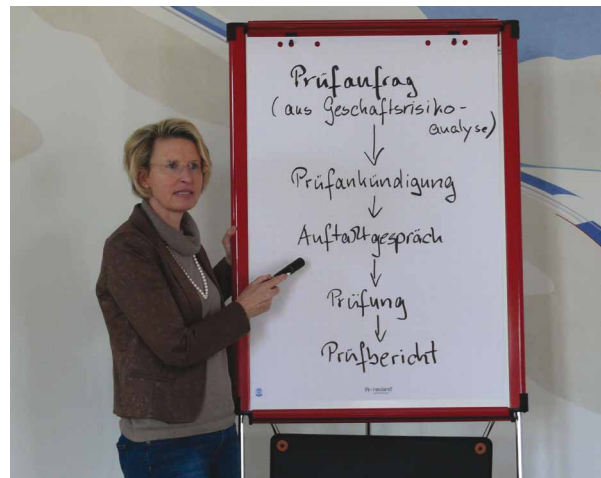 Prüfanfrag
(aus Geschäftsrisiko-
analyse)
Prüfankündigung
Auftaktgespräch
Prüfung
Prüfbericht
neuland